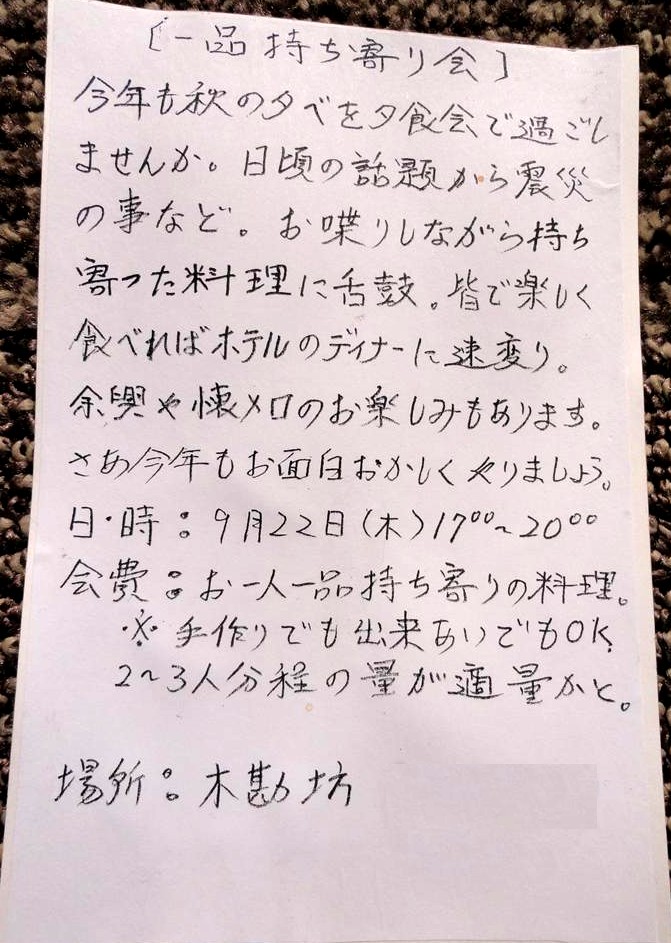 〔一品持ち寄り会〕
今年も秋の夕べを夕食会で過ごし
ませんか。日頃の話題から震災
の事など。お喋りしながら持ち
寄った料理に舌鼓。皆で楽しく
食べればホテルのディナーに速変り。
余興や懐メロのお楽しみもあります。
さあ今年もお面白おかしくやりましょう。
日・時：9月22日(木)17⁰⁰~20⁰⁰
会費：お一人一品持ち寄りの料理。
※手作りでも出来あいでもOK
2~3人分程の量が適量かと。
場所：木勘坊